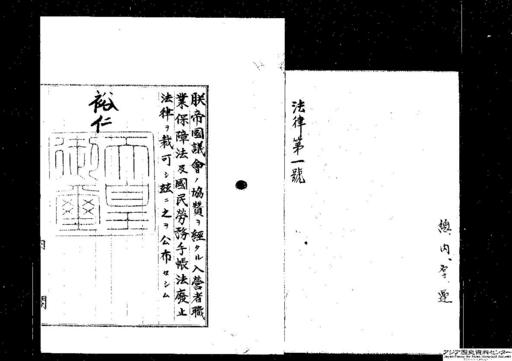 法律第一號
朕帝國議會ノ協賛ヲ經タル入營者職
業保障法及國民勞務手帳法廢止
法律ヲ裁可シ玆ニ之ヲ公布セシム
裕仁
天皇
御璽
内閣
アジア歴史資料センター